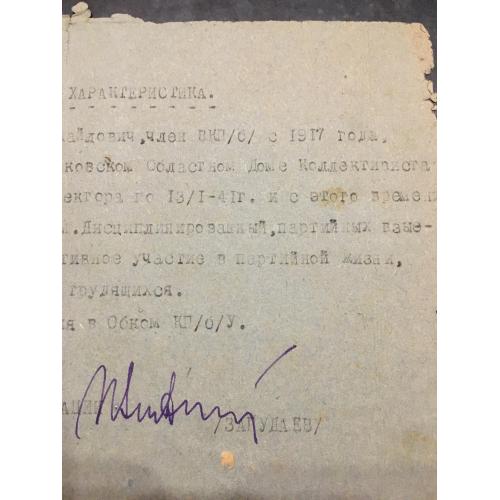 ХАРАКТЕРИСТИКА.
хайлович,член ВКП/б/ с 1917 года,
ковском Областном Доме Коллективиста
ектора по 13/I-41г. и с этого времени
.Дисциплинированный,партийных взые-
тивное участие в партийной жизни,
трудящихся.
ия в Обком КП/б/У.
АЦИИ
/ЗАПУДАЕВ/